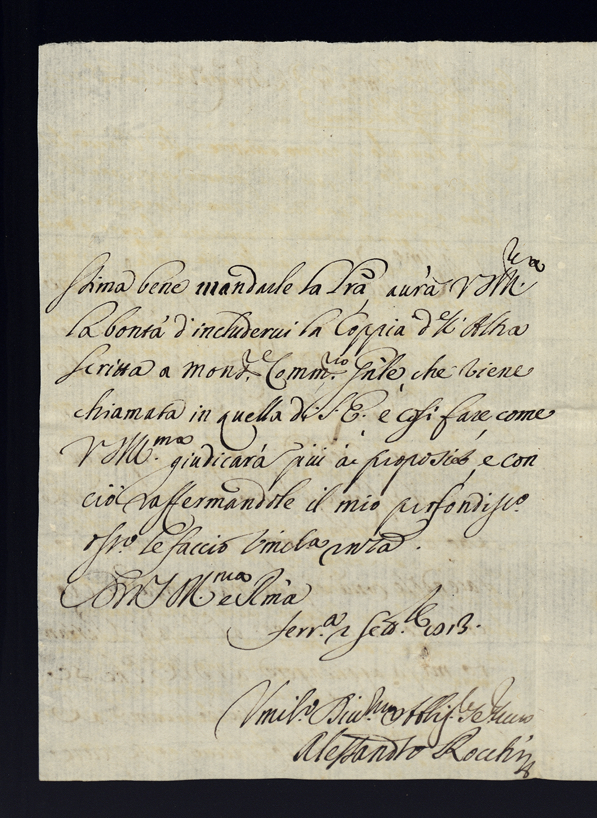 stima bene mandarle la pr̃a, aurà V Ill.ma
la bontà d'includerui la Coppia dell'Altra
scritta a Mons.re Comm.rio Gñle, che viene
chiamata in quella di S. E. e così fare come
V Ill.ma giudicarà più à proposito, e con
ciò raffermandole il mio profondiss.o
osso.o le faccio
e Rm̃a
Ferr.a 2 Sett.bre
Umil.o Diu.mo Obblig.
Alessandro Rocchi